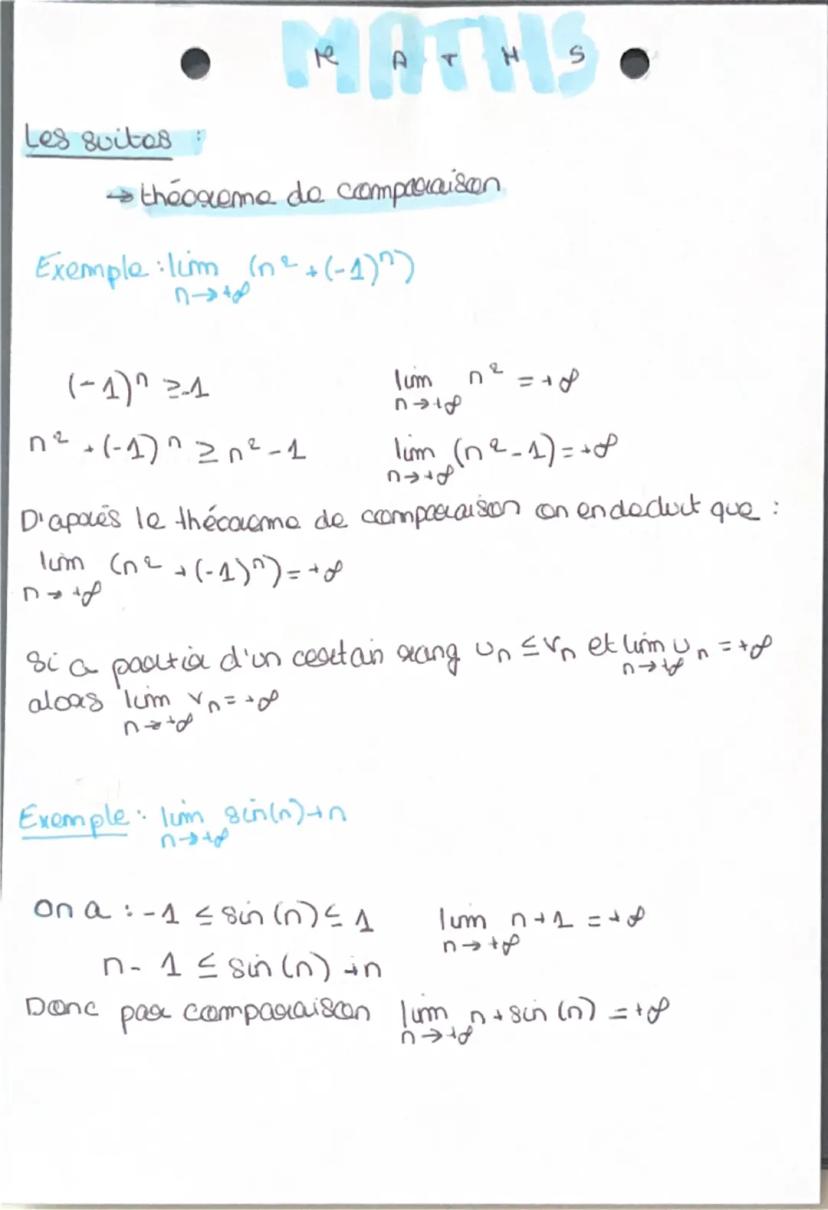 MATHS
Les suites :
→ théorème de comparaison
Exemple : lim (n² + (-1)ⁿ)
n→+∞
(-1)ⁿ ≥ -1 lim n² = +∞
n→+∞
n² + (-1)ⁿ ≥ n² - 1 lim (n² - 1) = +∞
n→+∞
D'après le théorème de comparaison on en deduit que :
lim (n² + (-1)ⁿ) = +∞
n→+∞
Si a partir d'un certain rang uₙ ≤ vₙ et lim uₙ = +∞
n→+∞
alors lim vₙ = +∞
n→+∞
Exemple : lim sin(n) + n
n→+∞
on a : -1 ≤ sin(n) ≤ 1 lim n+1 = +∞
n→+∞
n - 1 ≤ sin(n) + n
Donc par comparaison lim n + sin(n) = +∞
n→+∞